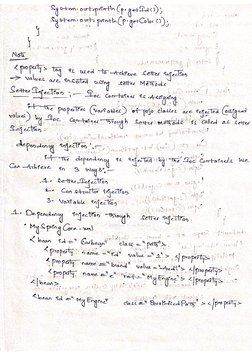 System.out.println(p.getPid());
System.out.println(p.getColor());
}
}
Note
<property> tag is used to Achieve Setter Injection
=> values are injected using setter Methods
Setter Injection :- Ioc Container is Assigning
If the properties (variables) of pojo classes are injected (assigned
values) by Ioc Container through setter methods is called as setter
Injection.
dependency injection :-
If the dependency is injected by the Ioc Containers we
Can Achieve in 3 ways.
1. Setter Injection
2. Constructor injection
3. Variable injection
1. Dependency injection through setter injection
• My Spring Core.xml
<bean id = " " class = "pojo">
<property name = "id" value = "1"> </property>
<property name = "brand" value = "Audi"> </property>
<property name = "e" ref = "MyEngine"> </property>
</bean>
<bean id = "MyEngine" class = > </property>